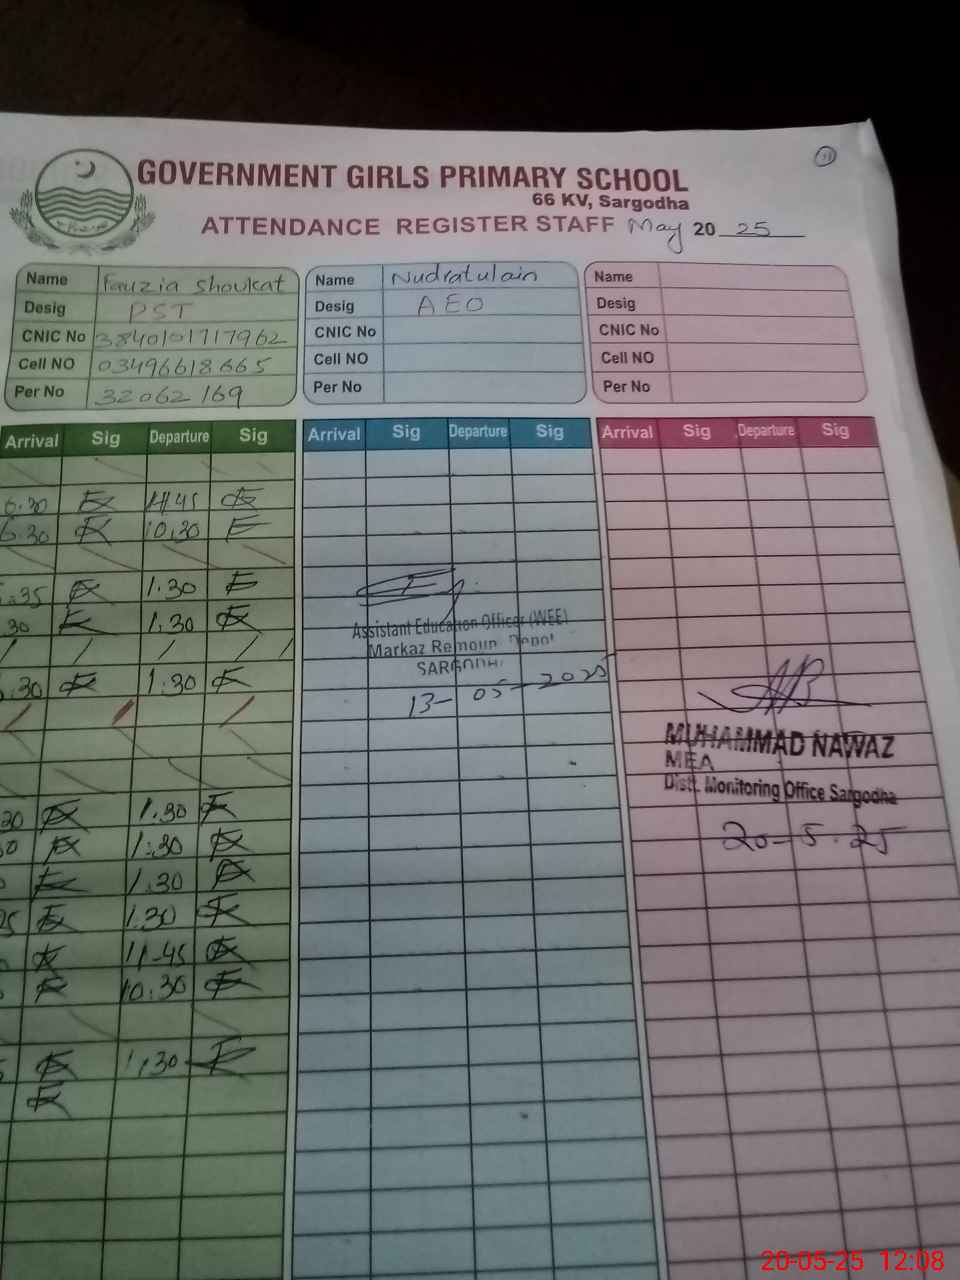 GOVERNMENT GIRLS PRIMARY SCHOOL
66 KV, Sargodha
ATTENDANCE REGISTER STAFF May 2025
Name Fauzia Shoukat
Desig PST
CNIC No 3840101717962
Cell NO 03496618665
Per No 32062169
Name Nudratulain
Desig AEO
CNIC No
Cell NO
Per No
Name
Desig
CNIC No
Cell NO
Per No
Arrival Sig Departure Sig Arrival Sig Departure Sig Arrival Sig Departure Sig
6.30 11.45
6.30 10.30
.35 1.30
.30 1.30
.30 1.30
30 1.30
1.30
1.30
25 1.30
11-45
10.30
1.30
Assistant Education Officer (WEE)
Markaz Remount Depot
SARGODHA
13-05-2025
MUHAMMAD NAWAZ
MEA
Distt. Monitoring Office Sargodha
20-5-25
20-05-25 12:08